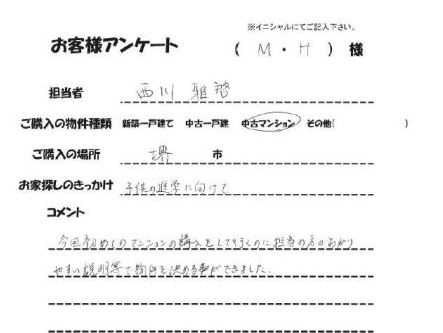 ※イニシャルにてご記入下さい。
お客様アンケート ( M・H ) 様
担当者 西川 雅啓
ご購入の物件種類 新築一戸建て 中古一戸建 中古マンション その他( )
ご購入の場所 堺 市
お家探しのきっかけ 子供の進学に向けて
コメント
今回初めてのマンションの購入をして行くのに担当の方のわかり
やすい説明等で物件を決める事ができました。